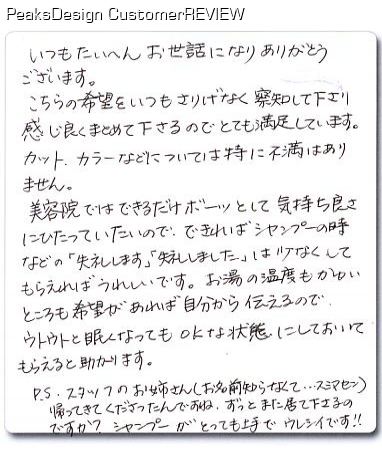 PeaksDesign CustomerREVIEW
いつもたいへん お世話になり ありがとう
ございます。
こちらの希望を いつも さりげなく 察知して下さり
感じ良くまとめて下さるので とても満足しています。
カット、カラーなどについては特に不満はあり
ません。
美容院ではできるだけボーッとして 気持ち良さ
にひたっていたいので、できればシャンプーの時
などの「失礼します」「失礼しました。」は少なくして
もらえればうれしいです。お湯の温度もかゆい
ところも希望があれば自分から伝えるので
ウトウトと眠くなっても OKな状態にしておいて
もらえると助かります。
P.S. スタッフのお姉さん(お名前知らなくて…スミマセン)
帰ってきてくださったんですね。ずっとまた居て下さるの
ですか? シャンプーがとっても上手でウレシイです!!